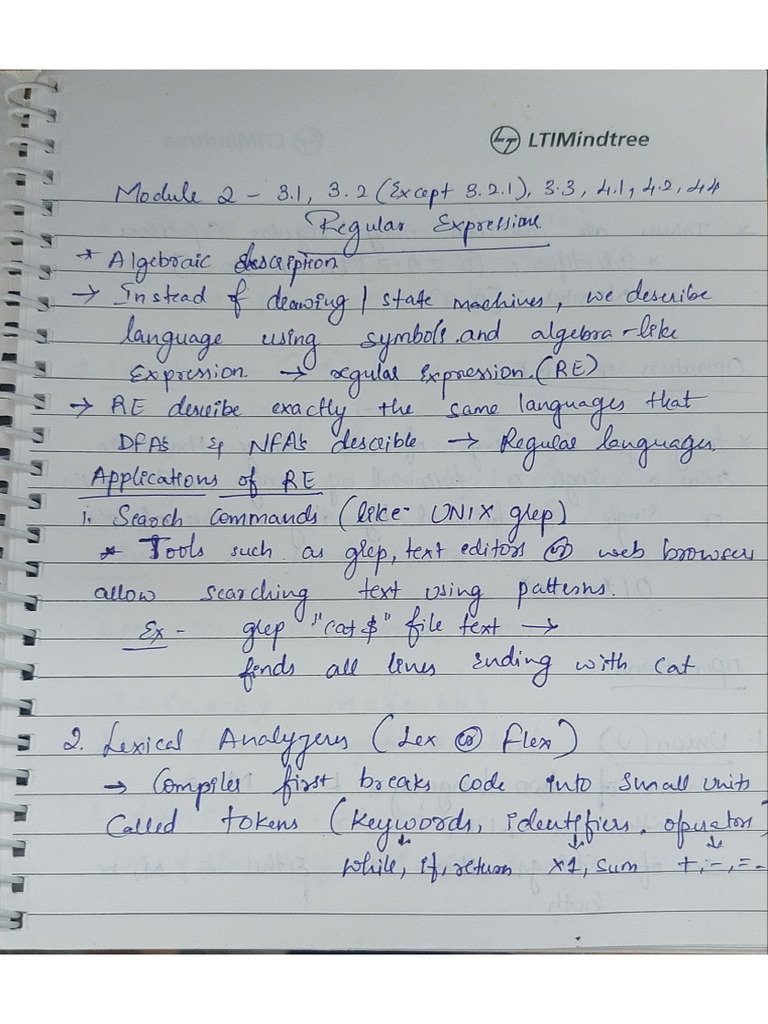 LTIMindtree
Module 2 - 3.1, 3.2 (Except 3.2.1), 3.3, 4.1, 4.2, 4.4
Regular Expressions
* Algebraic description
→ Instead of drawing / state machines, we describe
language using symbols and algebra-like
Expression → regular expression. (RE)
→ RE describe exactly the same languages that
DFA's & NFA's describle → Regular languages.
Applications of RE
1. Search Commands (like- UNIX grep)
* Tools such as grep, text editors or web browser
allow searching text using patterns.
Ex - grep "cat$" file text →
finds all lines ending with cat
2. Lexical Analyzers (Lex or Flex)
→ Compiler first breaks code into small units
Called tokens (Keywords, identifiers, operators)
while, if, return x1, sum +, -, =